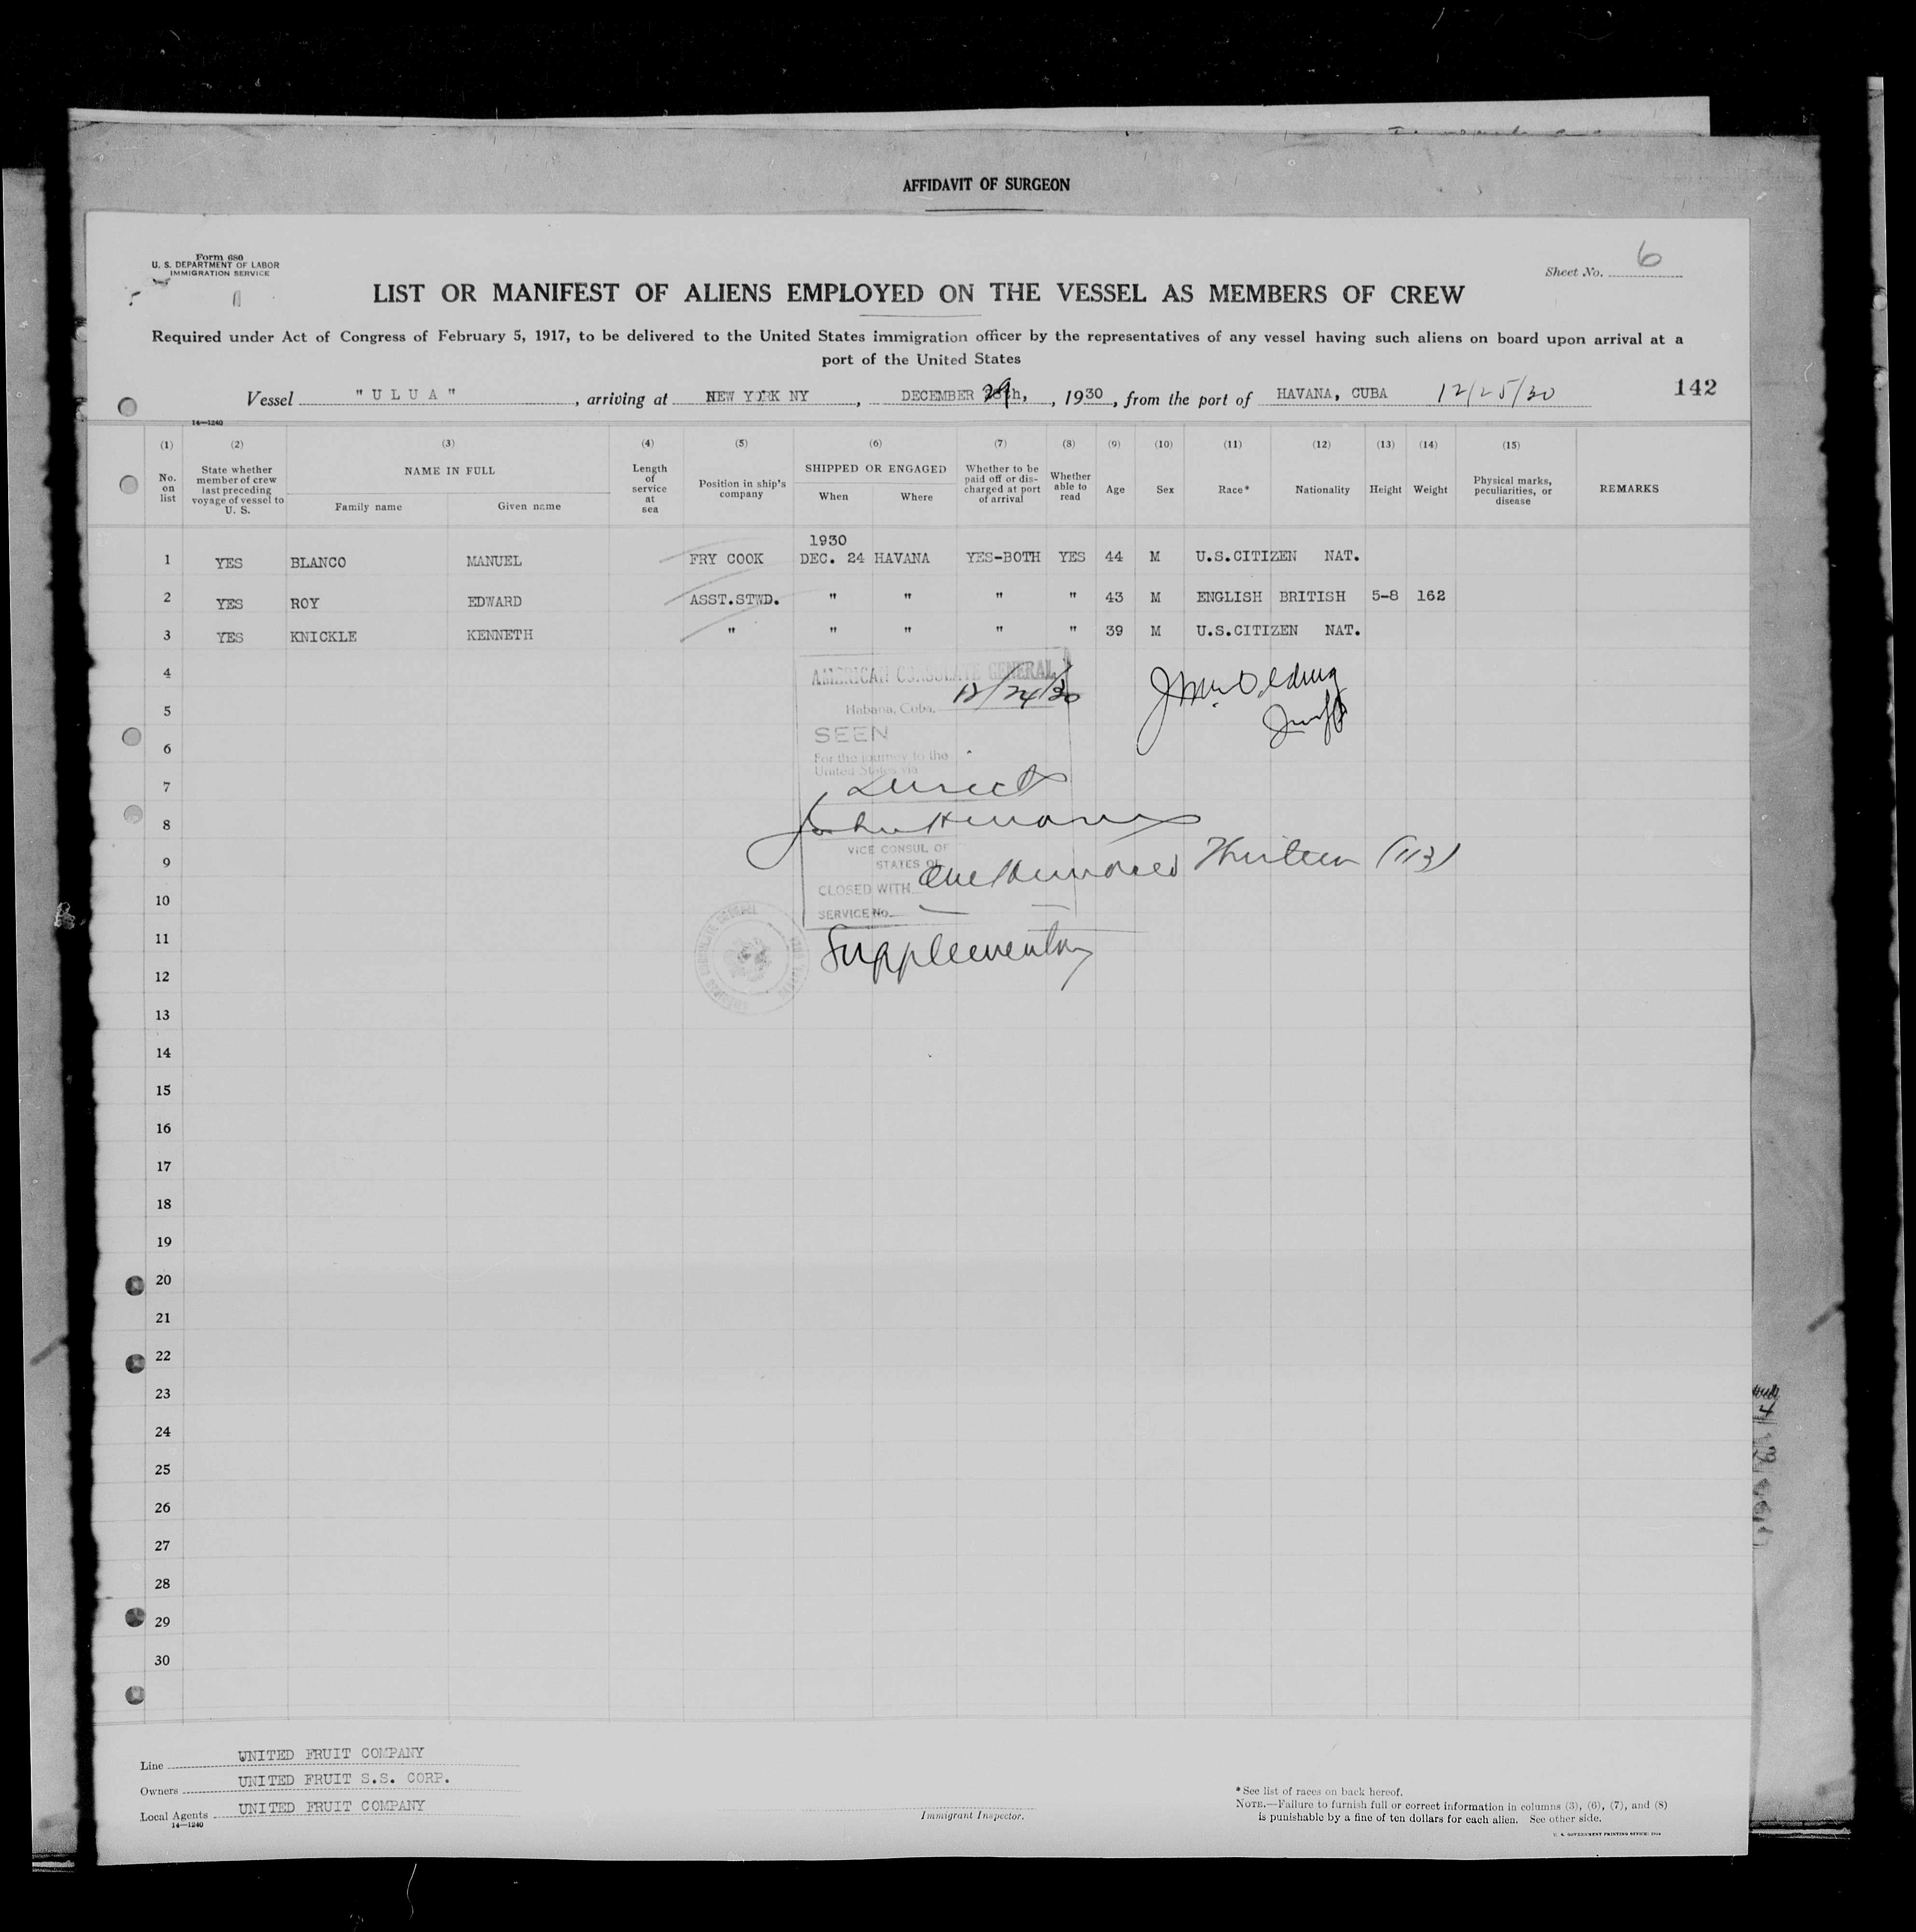 AFFIDAVIT OF SURGEON
Form 680
U. S. DEPARTMENT OF LABOR
IMMIGRATION SERVICE
Sheet No. 6
LIST OR MANIFEST OF ALIENS EMPLOYED ON THE VESSEL AS MEMBERS OF CREW
Required under Act of Congress of February 5, 1917, to be delivered to the United States immigration officer by the representatives of any vessel having such aliens on board upon arrival at a
port of the United States
Vessel "ULUA", arriving at NEW YORK NY, DECEMBER 29th, 1930, from the port of HAVANA, CUBA 12/25/30 142
14—1240
(1) (2) (3) (4) (5) (6) (7) (8) (9) (10) (11) (12) (13) (14) (15)
No. on list
State whether member of crew last preceding voyage of vessel to U. S.
NAME IN FULL
Family name Given name
Length of service at sea
Position in ship's company
SHIPPED OR ENGAGED
When Where
Whether to be paid off or discharged at port of arrival
Whether able to read
Age Sex Race* Nationality Height Weight
Physical marks, peculiarities, or disease
REMARKS
1930
1 YES BLANCO MANUEL FRY COOK DEC. 24 HAVANA YES-BOTH YES 44 M U.S.CITIZEN NAT.
2 YES ROY EDWARD ASST.STWD. " " " " 43 M ENGLISH BRITISH 5-8 162
3 YES KNICKLE KENNETH " " " " " 39 M U.S.CITIZEN NAT.
4
AMERICAN CONSULATE GENERAL
12/24/30
5
Habana, Cuba,
SEEN
6
For the journey to the
United States via
7
Direct
8
VICE CONSUL OF
9
STATES OF
One Hundred Thirteen (113)
CLOSED WITH
10
SERVICE No.
11
Supplementary
12
13
14
15
16
17
18
19
20
21
22
23
24
25
26
27
28
29
30
Line UNITED FRUIT COMPANY
Owners UNITED FRUIT S.S. CORP.
Local Agents UNITED FRUIT COMPANY
14—1240
Immigrant Inspector.
*See list of races on back hereof.
NOTE.—Failure to furnish full or correct information in columns (3), (6), (7), and (8)
is punishable by a fine of ten dollars for each alien. See other side.
U. S. GOVERNMENT PRINTING OFFICE